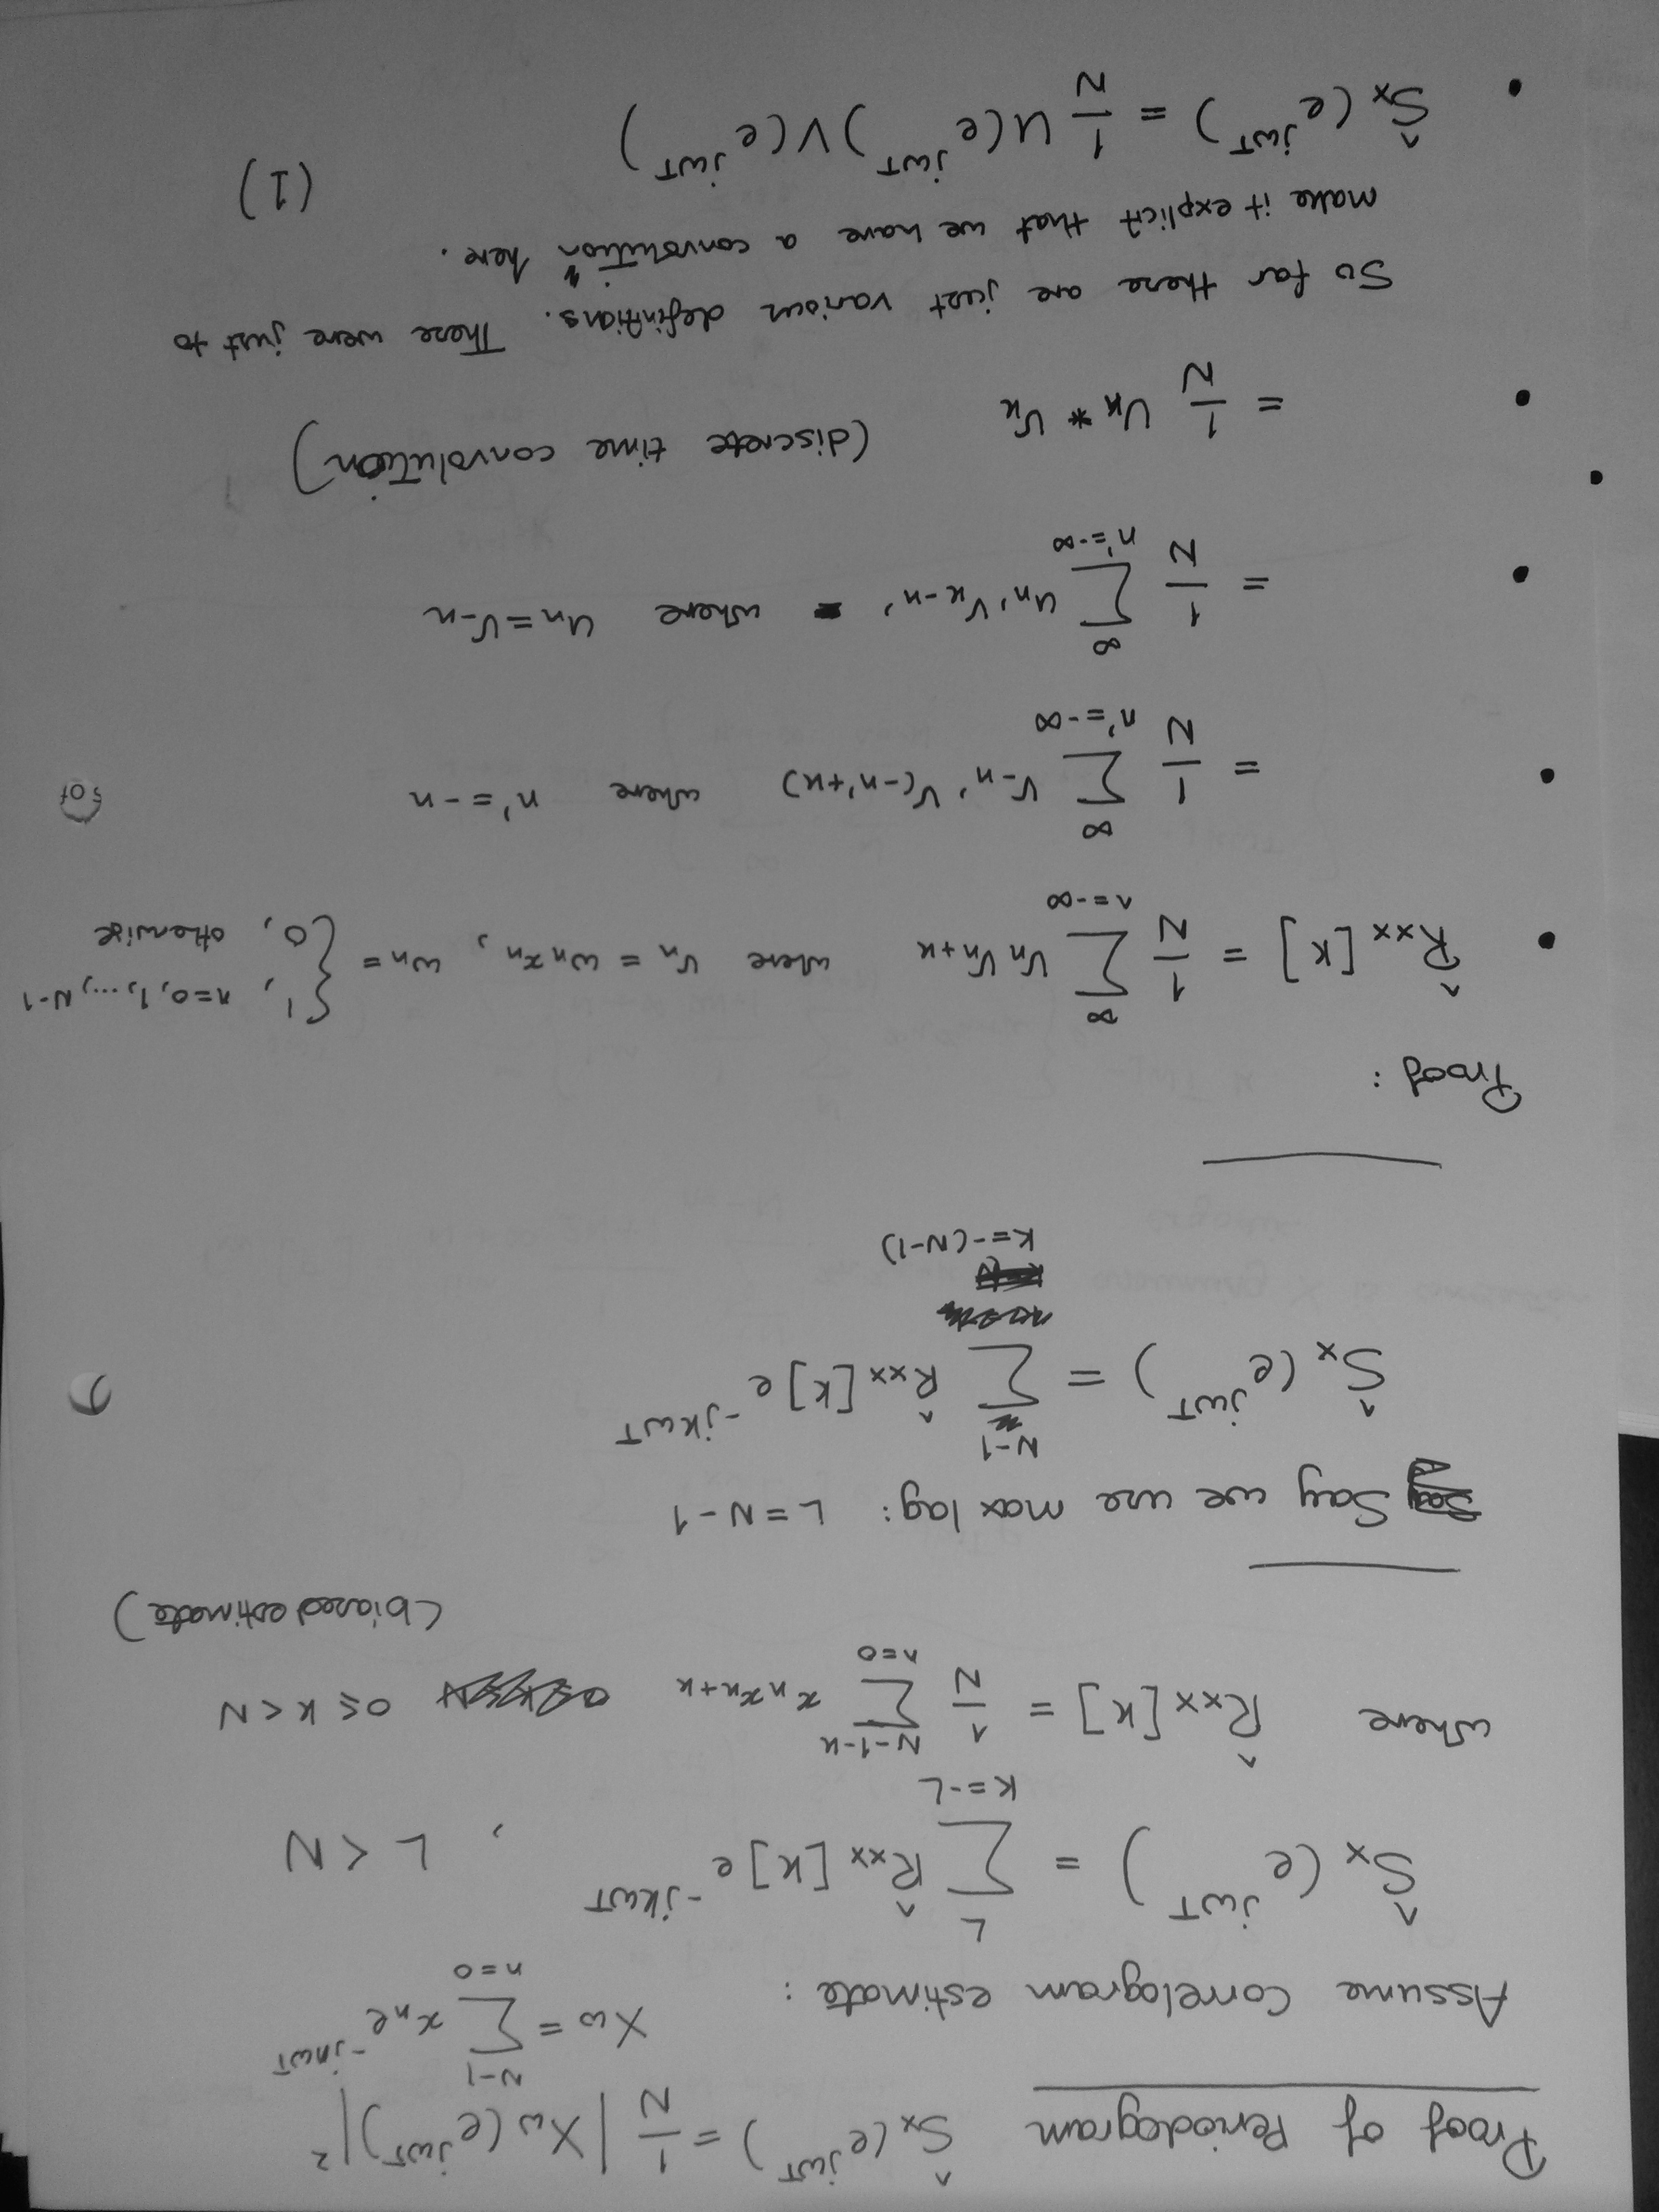 Proof of Periodogram Ŝx(e^{jωT}) = 1/N |Xω(e^{jωT})|²
Xω = Σ_{n=0}^{N-1} xₙ e^{-jnωT}
Assume correlogram estimate :
Ŝx(e^{jωT}) = Σ_{k=-L}^{L} R̂xx[k] e^{-jkωT} , L < N
where R̂xx[k] = 1/N Σ_{n=0}^{N-1-k} xₙxₙ₊ₖ 0 ≤ k < N
(biased estimate)
Say we use max lag: L = N-1
Ŝx(e^{jωT}) = Σ_{k=-(N-1)}^{N-1} R̂xx[k] e^{-jkωT}
Proof :
R̂xx[k] = 1/N Σ_{n=-∞}^{∞} vₙvₙ₊ₖ where vₙ = ωₙxₙ, ωₙ = { 1, n=0,1,...,N-1
0, otherwise
= 1/N Σ_{n'=-∞}^{∞} v_{-n'} v_{(-n'+k)} where n' = -n
= 1/N Σ_{n'=-∞}^{∞} u_{n'} v_{k-n'} where uₙ = v₋ₙ
= 1/N uₖ * vₖ (discrete time convolution)
So far these are just various definitions. These were just to
make it explicit that we have a convolution here.
(1)
Ŝx(e^{jωT}) = 1/N U(e^{jωT}) V(e^{jωT})